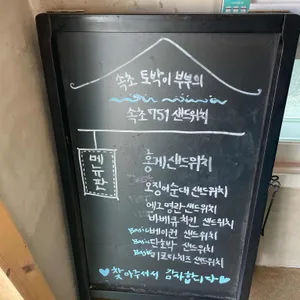 속초 토박이 부부의
속초 751 샌드위치
메뉴판
홍게샌드위치
오징어순대 샌드위치
에그명란 샌드위치
바베큐 치킨 샌드위치
Basic 베이컨 샌드위치
Basic 단호박 샌드위치
Basic 리코타치즈 샌드위치
♥ 찾아주셔서 감사합니다 ♥